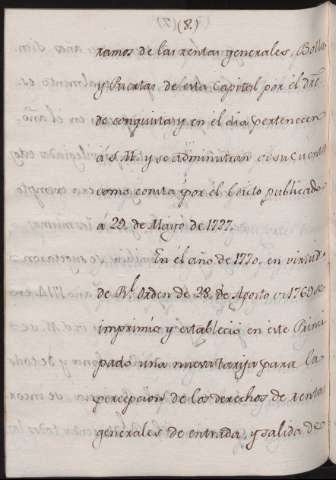 (8.)
ramos de las rentas generales, Bolla
y Puertas de esta Capital por el dro
de conquista y en el dia pertenecen
á S. M. y se administran a su cuenta
como consta por el Edicto publicado
á 29. de Mayo de 1727.
En el año de 1770, en virtud
de Rl. Orden de 28. de Agosto de 1769 se
imprimió y estableció en este Princi
pado una nueva tarifa para la
percepcion de los derechos de rentas
generales de entrada, y salida de